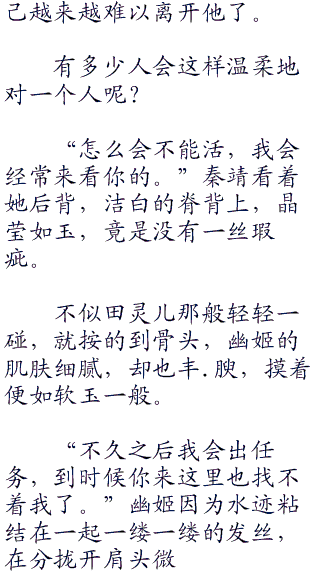 己越来越难以离开他了。
有多少人会这样温柔地
对一个人呢？
“怎么会不能活，我会
经常来看你的。”秦靖看着
她后背，洁白的脊背上，晶
莹如玉，竟是没有一丝瑕
疵。
不似田灵儿那般轻轻一
碰，就按的到骨头，幽姬的
肌肤细腻，却也丰.腴，摸着
便如软玉一般。
“不久之后我会出任
务，到时候你来这里也找不
着我了。”幽姬因为水迹粘
结在一起一缕一缕的发丝，
在分拢开肩头微